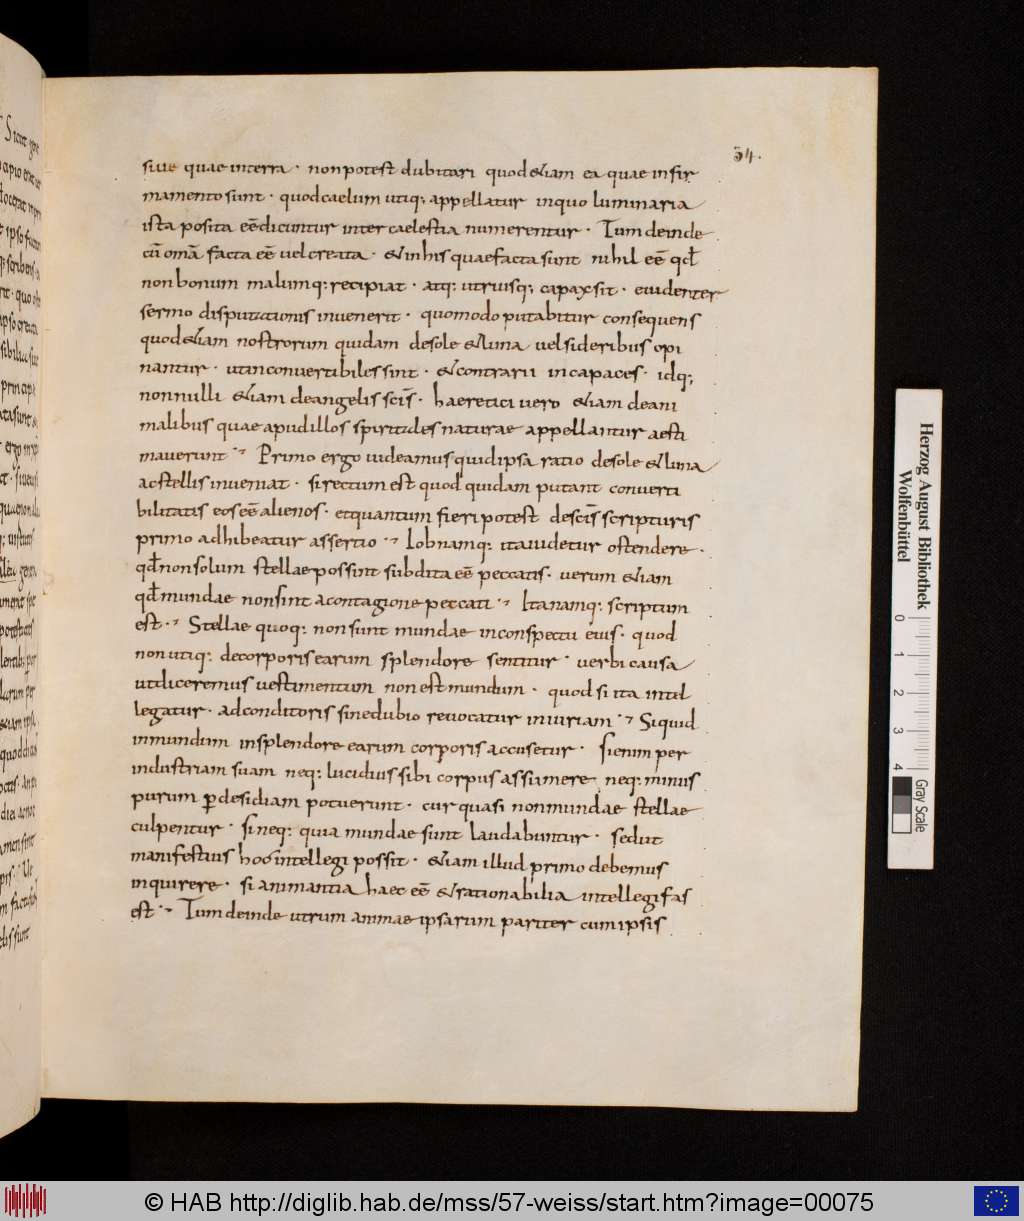 34.
siue quae interra · non potest dubitari quod &iam ea quae infir
mamento sunt · quodcaelum utiq; appellatur inquo luminaria
ista posita eē dicuntur inter caelestia numerentur · Tum deinde
cū omā facta eē uel creata · & in his quae facta sunt nihil eē qđ
non bonum malumq; recipiat · atq; utriusq; capax sit · euidenter
sermo disputationis inuenerit · quomodo putabitur consequens
quod &iam nostrorum quidam desole & luna uel sideribus opi
nantur · utinconuertibiles sint · & contrarii incapaces · idq;
nonnulli &iam deangelis scīs · haeretici uero &iam deani
malibus quae apud illos spiritales naturae appellantur aesti
mauerunt · Primo ergo uideamus quid ipsa ratio desole & luna
ac stellis inueniat · si rectum est quod quidam putant conuerti
bilitatis eos eē alienos · etquantum fieri potest descīs scripturis
primo adhibeatur assertio · Iob namq; ita uidetur ostendere ·
qđ non solum stellae possint subdita eē peccatis · uerum &iam
qđ mundae non sint acontagione peccati · Ita namq; scriptum
est · Stellae quoq; non sunt mundae inconspectu eius · quod
non utiq; decorporis earum splendore sentitur · uerbi causa
utdiceremus uestimentum non est mundum · quod si ita intel
legatur · adconditoris sinedubio reuocatur iniuriam · Si quid
inmundum insplendore earum corporis accusetur · Si enim per
industriam suam neq; lucidius sibi corpus assumere neq; minus
purum ꝑ desidiam potuerunt · cur quasi non mundae stellae
culpentur · Si neq; quia mundae sunt laudabuntur · sed ut
manifestius hoc intellegi possit · &iam illud primo debemus
inquirere · si animantia haec eē & rationabilia intellegi fas
est · Tum deinde utrum animae ipsarum pariter cum ipsis
Herzog August Bibliothek
Wolfenbüttel
0 1 2 3 4
Gray Scale
© HAB http://diglib.hab.de/mss/57-weiss/start.htm?image=00075